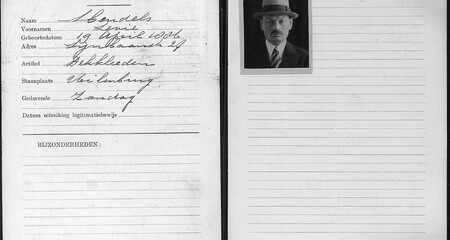 Naam Mendels
Voornamen Levie
Geboortedatum 19 April 1886
Adres Lijnbaansch 27
Artikel Dekkleeden
Staanplaats Uilenburg
Gedurende Zondag
Datum uitreiking legitimatiebewijs
BIJZONDERHEDEN: